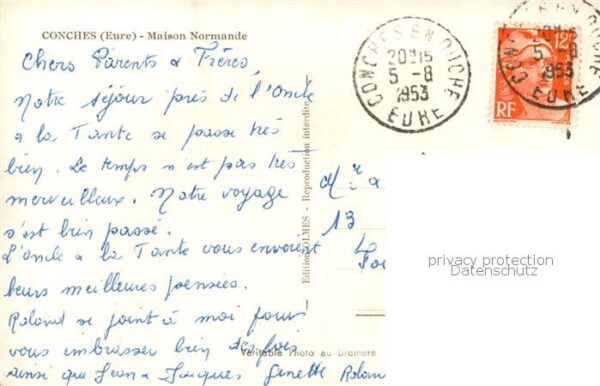 CONCHES (Eure) - Maison Normande
Chers Parents & Frères,
Notre séjour près de l'Oncle
& la Tante se passe très
bien. Le temps n'est pas très
merveilleux. Notre voyage
s'est bien passé.
L'Oncle & la Tante vous envoient
leurs meilleures pensées.
Roland se joint à moi pour
vous embrasser bien des fois
ainsi que Jean & Jacques Ginette Rolan
Edition
- Reproduction interdite
Véritable Photo au Bromure
CONCHES EN OUCHE
20H15
5-8
1953
EURE
12F
RF
CONCHES EN OUCHE
20H15
5-8
1953
EURE
Mr &
13
privacy protection
Datenschutz